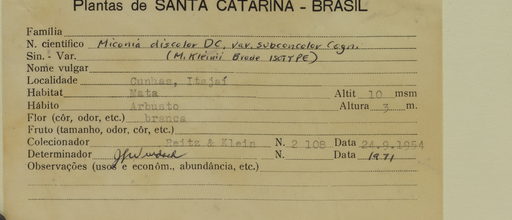 Plantas de SANTA CATARINA - BRASIL
Família
N. científico Miconia discolor DC. var. subconcolor Cogn.
Sin. - Var. (M. Kleinii Brade ISOTYPE)
Nome vulgar
Localidade Cunhas, Itajaí
Habitat Mata Altit 10 msm
Hábito Arbusto Altura 3 m.
Flor (côr, odor, etc.) branca
Fruto (tamanho, odor, côr, etc.)
Colecionador Reitz & Klein N. 2 108 Data 24.9.1954
Determinador J J Wurdack N. Data 1971
Observações (usos e econôm., abundância, etc.)